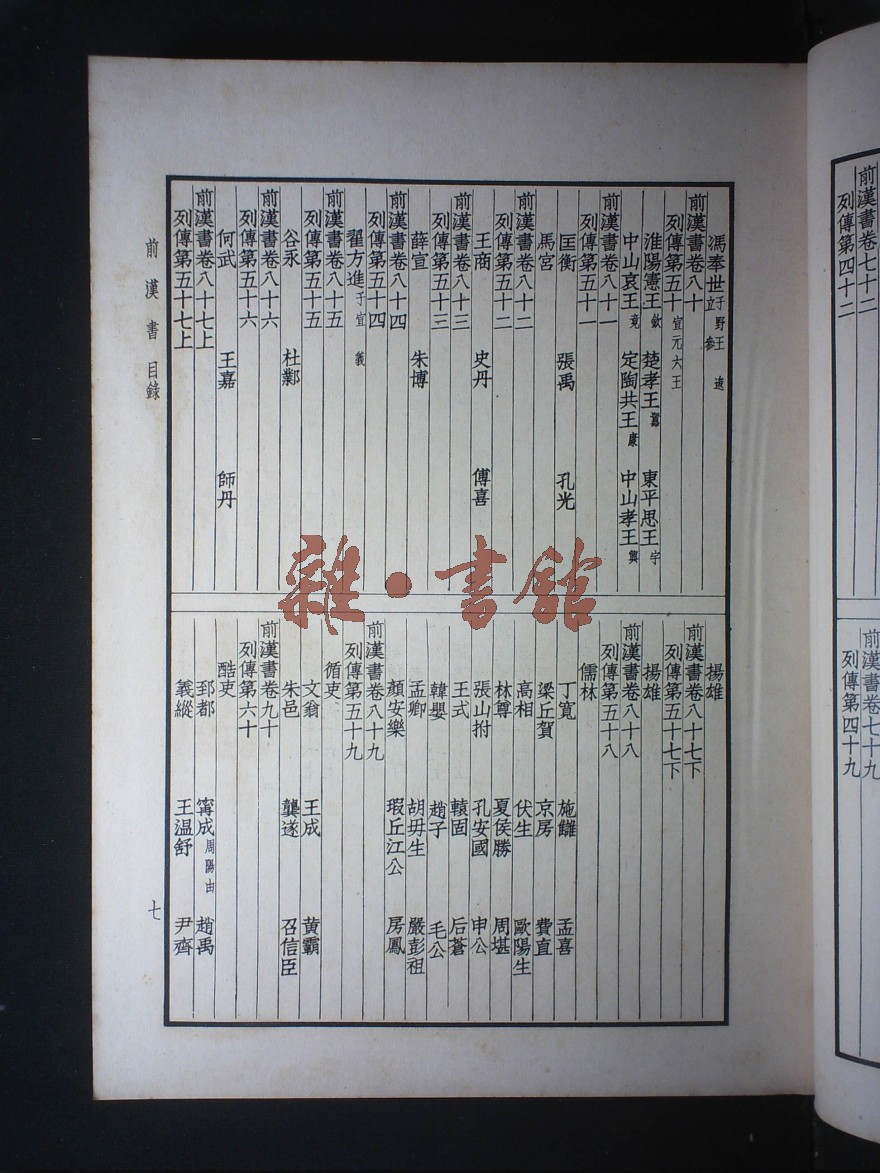 馮奉世子野王 逡 立 參
前漢書卷八十
列傳第五十宣元六王
淮陽憲王欽 楚孝王囂 東平思王宇
中山哀王竟 定陶共王康 中山孝王興
前漢書卷八十一
列傳第五十一
匡衡 張禹 孔光
馬宮
前漢書卷八十二
列傳第五十二
王商 史丹 傅喜
前漢書卷八十三
列傳第五十三
薛宣 朱博
前漢書卷八十四
列傳第五十四
翟方進子宣 義
前漢書卷八十五
列傳第五十五
谷永 杜鄴
前漢書卷八十六
列傳第五十六
何武 王嘉 師丹
前漢書卷八十七上
列傳第五十七上
揚雄
前漢書卷八十七下
列傳第五十七下
揚雄
前漢書卷八十八
列傳第五十八
儒林
丁寬 施讎 孟喜
梁丘賀 京房 費直
高相 伏生 歐陽生
林尊 夏侯勝 周堪
張山拊 孔安國 申公
王式 轅固 后蒼
韓嬰 趙子 毛公
孟卿 胡毋生 嚴彭祖
顏安樂 瑕丘江公 房鳳
前漢書卷八十九
列傳第五十九
循吏
文翁 王成 黄霸
朱邑 龔遂 召信臣
前漢書卷九十
列傳第六十
酷吏
郅都 甯成周陽由 趙禹
義縱 王温舒 尹齊
前漢書 目錄
七
前漢書卷七十二
列傳第四十二
前漢書卷七十九
列傳第四十九
雜·書館